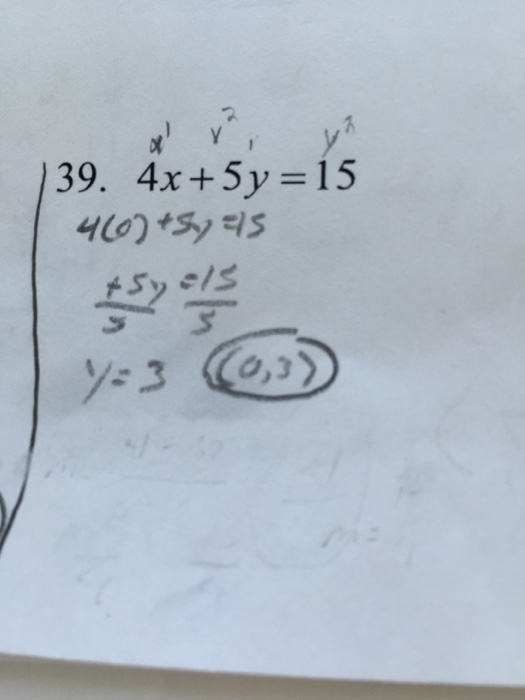 x¹ x² y¹ y²
39. 4x + 5y = 15
4(0) + 5y = 15
+5y = 15
5 5
y = 3 (0,3)
m =